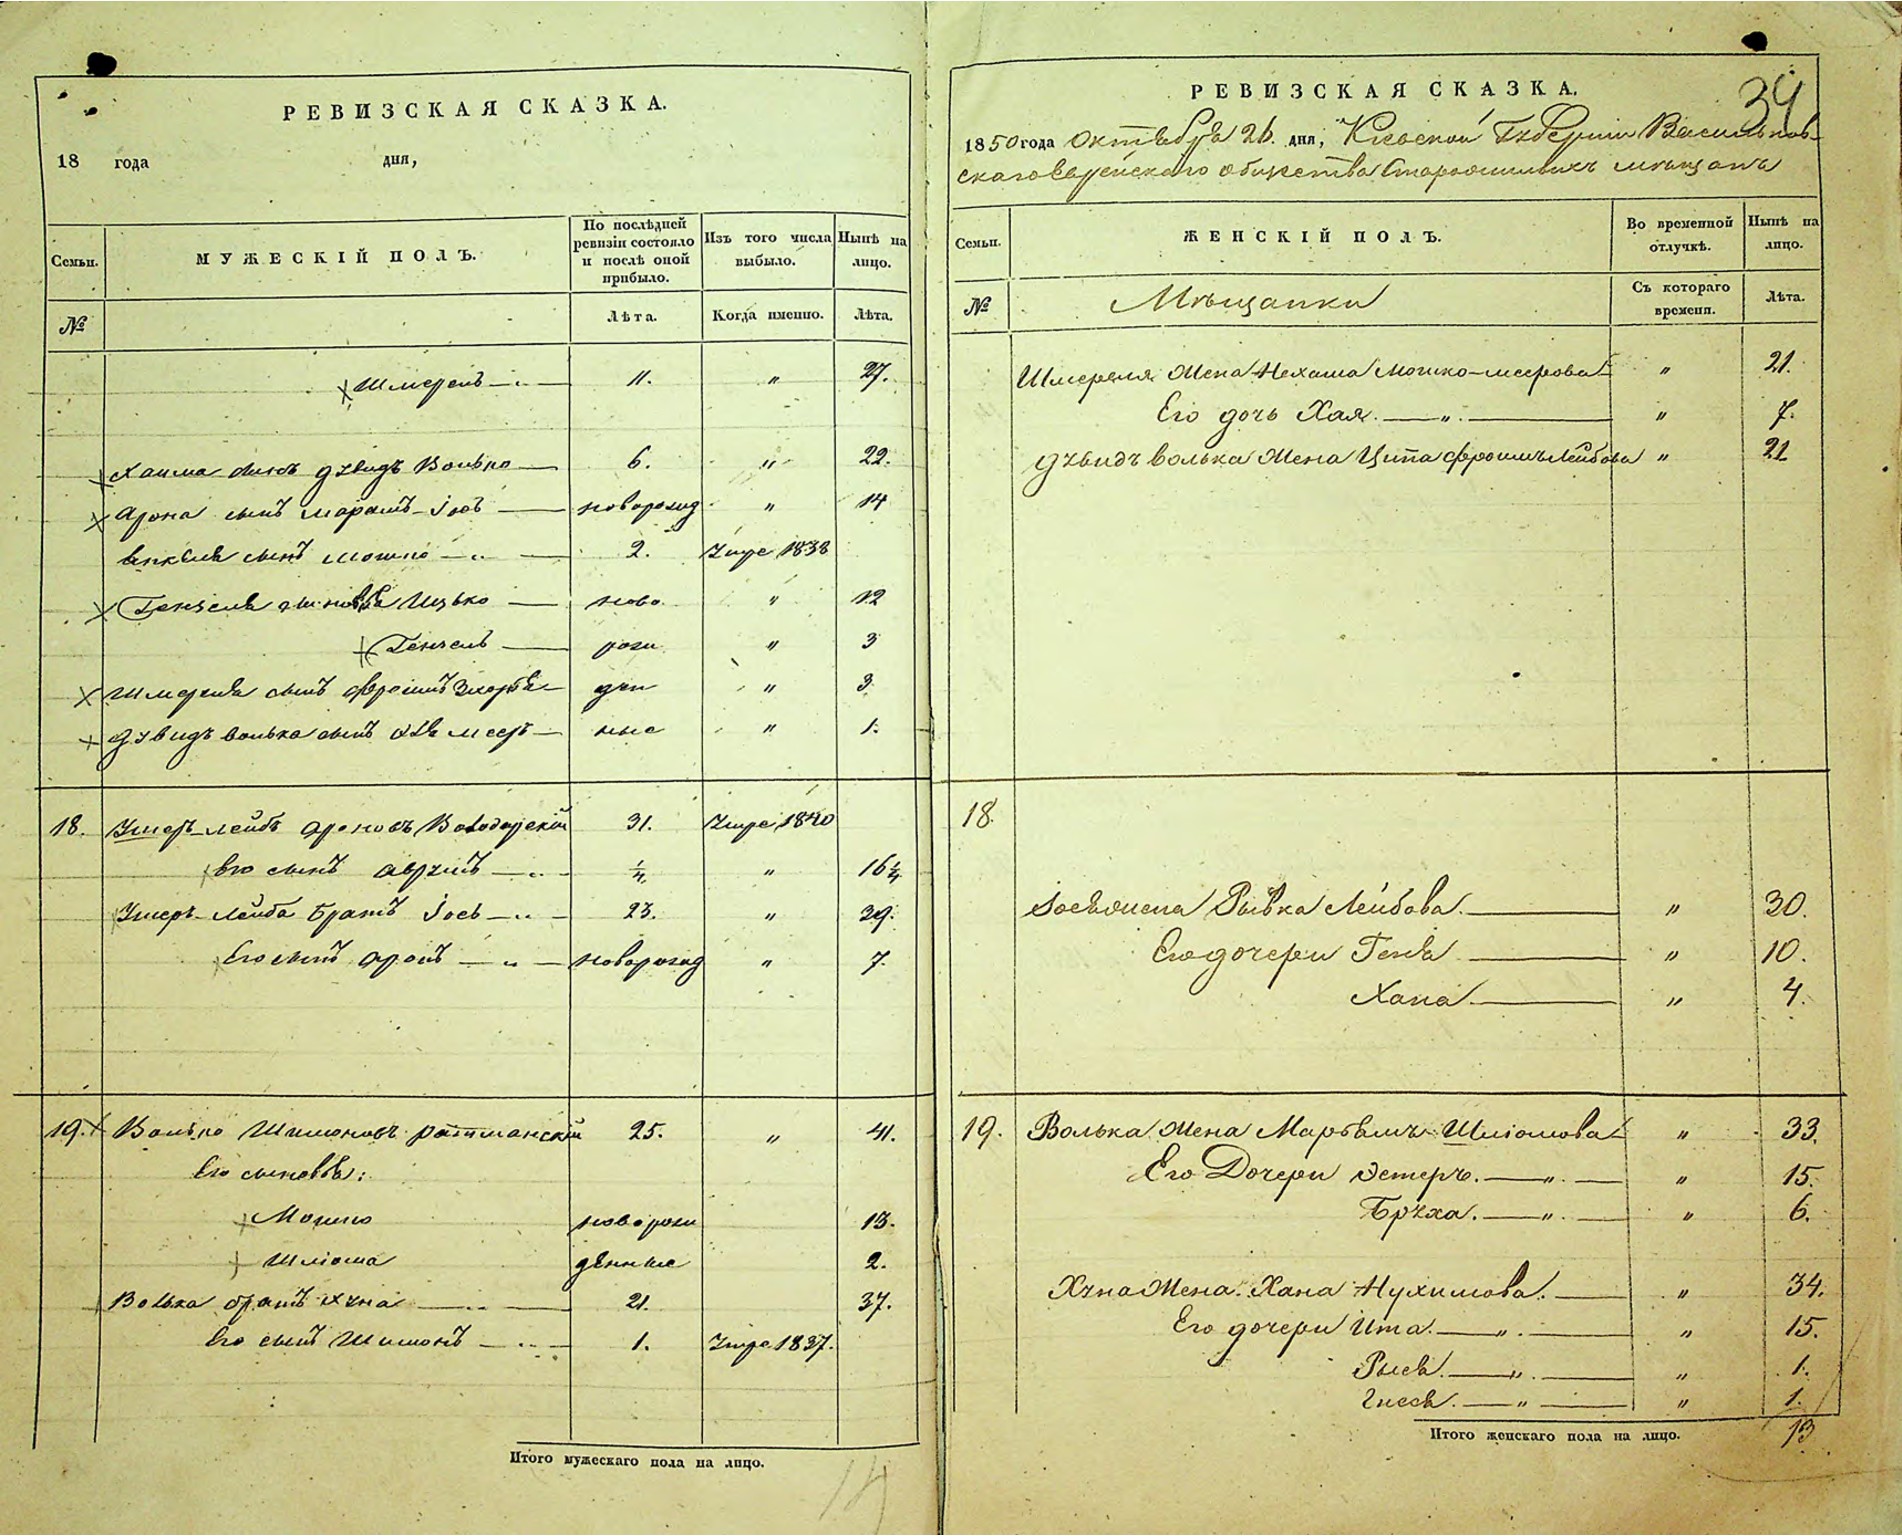 РЕВИЗСКАЯ СКАЗКА.
18 года дня,
Семьи.
МУЖЕСКІЙ ПОЛЪ.
По послѣдней ревизіи состояло и послѣ оной прибыло.
Изъ того числа выбыло.
Нынѣ на лицо.
№
Лѣта.
Когда именно.
Лѣта.
Шмерель 11. " 27.
Хаима сынъ Дувидъ Волько 6. " 22.
Арона сынъ новорожд " 14
сынъ Мошко 2. Умре 1838
сыновья Ицько ново " 12
рож " 3
Шмереля сынъ ден " 3
Дувидъ Волька сынъ ные " 1.
18. Умеръ Лейбъ Ароновъ Володарскій 31. Умре 1840
Его сынъ Аврумъ 1/4 " 16 1/4
Лейба братъ Іось 23. " 39.
Его сынъ Аронъ новорожд " 7.
19. Волько Шимоновъ Ратманскій 25. " 41.
Его сыновья:
Мошко новорож 13.
Шліома денные 2.
Волька братъ Хуна 21. 37.
Его сынъ Шимонъ 1. Умре 1837.
Итого мужескаго пола на лицо.
14
34
РЕВИЗСКАЯ СКАЗКА.
1850 года Октября 26. дня, Кіевской Губерніи Васильков-
скаго Еврейскаго общества мѣщанъ
Семьи.
ЖЕНСКІЙ ПОЛЪ.
Во временной отлучкѣ.
Нынѣ на лицо.
№
Мѣщанки
Съ котораго времени.
Лѣта.
Шмереля Жена Нехама Мошко-Меерова " 21.
Его дочь Хая. " 7.
Дувидъ Волька Жена Ципа Фроимъ Лейбова " 21
18.
Іося жена Рывка Лейбова. " 30.
Его дочери Геня " 10.
Хана " 4.
19. Волька Жена Марьямъ Шліомова " 33.
Его Дочери Эстеръ. " 15.
Бруха. " 6.
Хуна Жена Хана Нухимова. " 34.
Его дочери Ита. " 15.
Рыся. " 1.
" 1.
Итого женскаго пола на лицо.
13